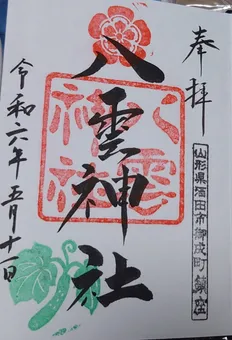 奉拝
山形県酒田市御成町鎮座
八雲神社
八雲神社
令和六年五月十一日